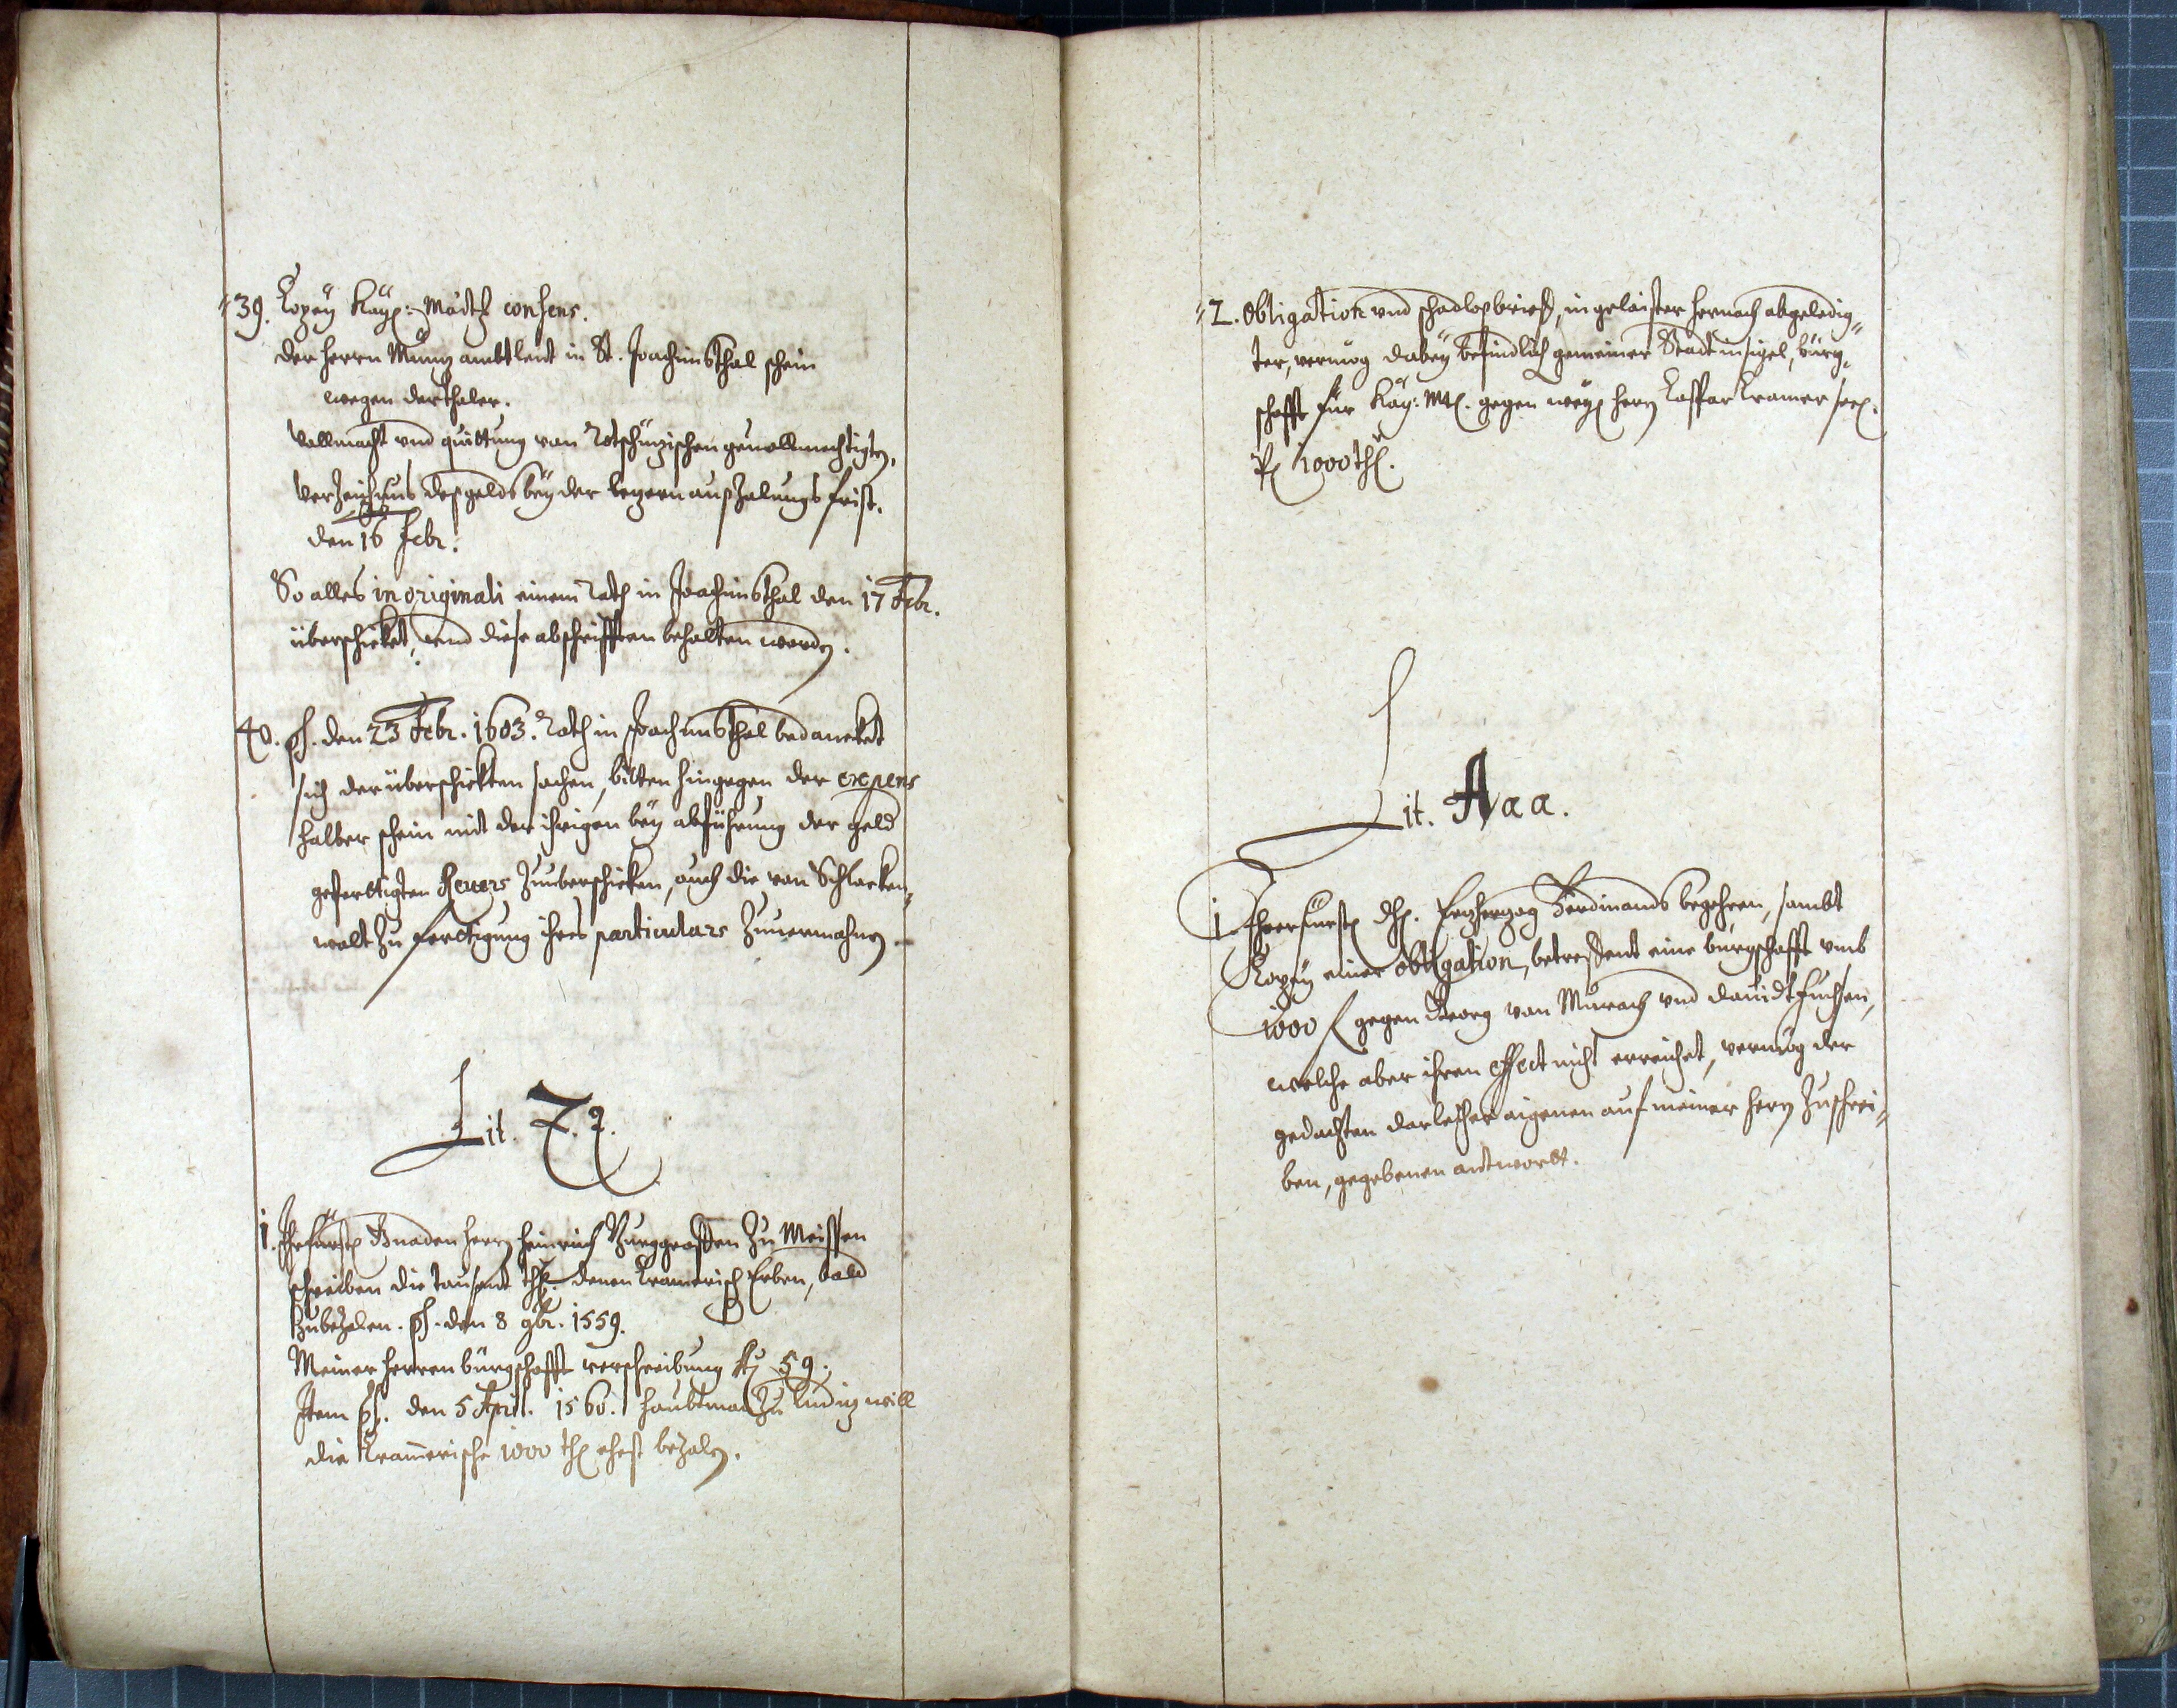 39. Copey Kayß: Maÿtt consens.
der herrn Müntz ambtleut in St. Joachimsthal schein
wegen der thaler.
Vollmacht vnd quittung von Rotschützischen gevollmechtigten,
Verzeichnus deß gelds bey der letzern außzalungs frist.
den 16 Febr.
So alles in originali einem Rath in Joachimsthal den 17 Febr.
überschicket, vnd diese abschrifften behalten worden.
40. ps. den 23 Febr. 1603. Rath in Joachimsthal bedancket
sich der überschickten sachen, bitten hingegen der expens
halber schein mit der ihrigen bey abführung der geld
gefertigten Revers zuuberschicken, auch die von Schlacken„
walt zu fertigung ihres particulars zuuermahnen.
Lit. Z. z.
1. Ihr fürstl Gnaden herrn Heinrich Burggraffen zu Meissen
schreiben die tausent thlr. denen Cramerisch Erben, bald
zubezalen. ps. den 8 9br. 1559.
Meiner herren bürgschafft verschreibung 59.
Item ps. den 5 April. 1560. haubtman zu Luditz will
die Cramerische 1000 thl ehest bezalen.
2. Obligation vnd schadloßbrieff, in geleister hernach abgeledig„
ter, vermög dabey befindlich gemeiner Stadt insigel, bürg„
schafft für Kay: Mt. gegen weyl herrn Caspar Cramer seel.
p 1000 thl.
Lit. Aaa.
1. Ihrer fürstl dhl. Erzherzog Ferdinands begehren, sambt
Copey einer obligation, betreffent eine bürgschafft vmb
1000 fl gegen Georg von Murach vnd Dauidt Fuchsen,
welche aber ihren effect nicht erreichet, vermög der
gedachten darleiher aigenen auf meiner herrn zuschrei„
ben, gegebenen antwortt.